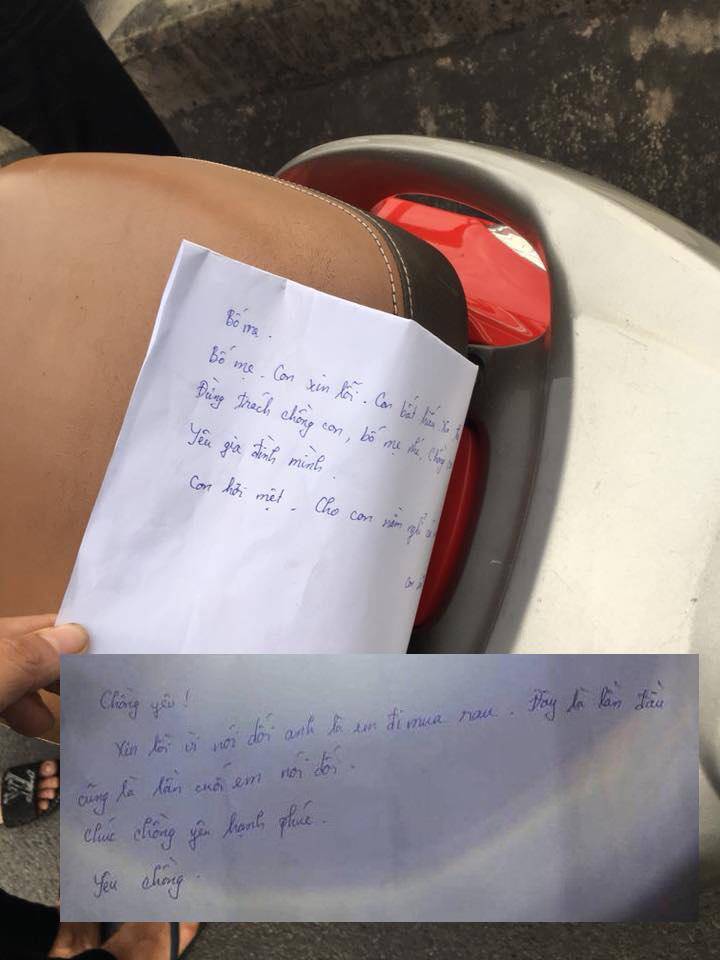 Bố mẹ.
Bố mẹ. Con xin lỗi. Con bất hiếu. Xin
Đừng trách chồng con, bố mẹ nhé. Chồng
Yêu gia đình mình.
Con hơi mệt. Cho con nằm nghỉ
con
Chồng yêu!
Xin lỗi vì nói dối anh là em đi mua rau. Đây là lần đầu
cũng là lần cuối em nói dối.
Chúc chồng yêu hạnh phúc.
Yêu chồng.